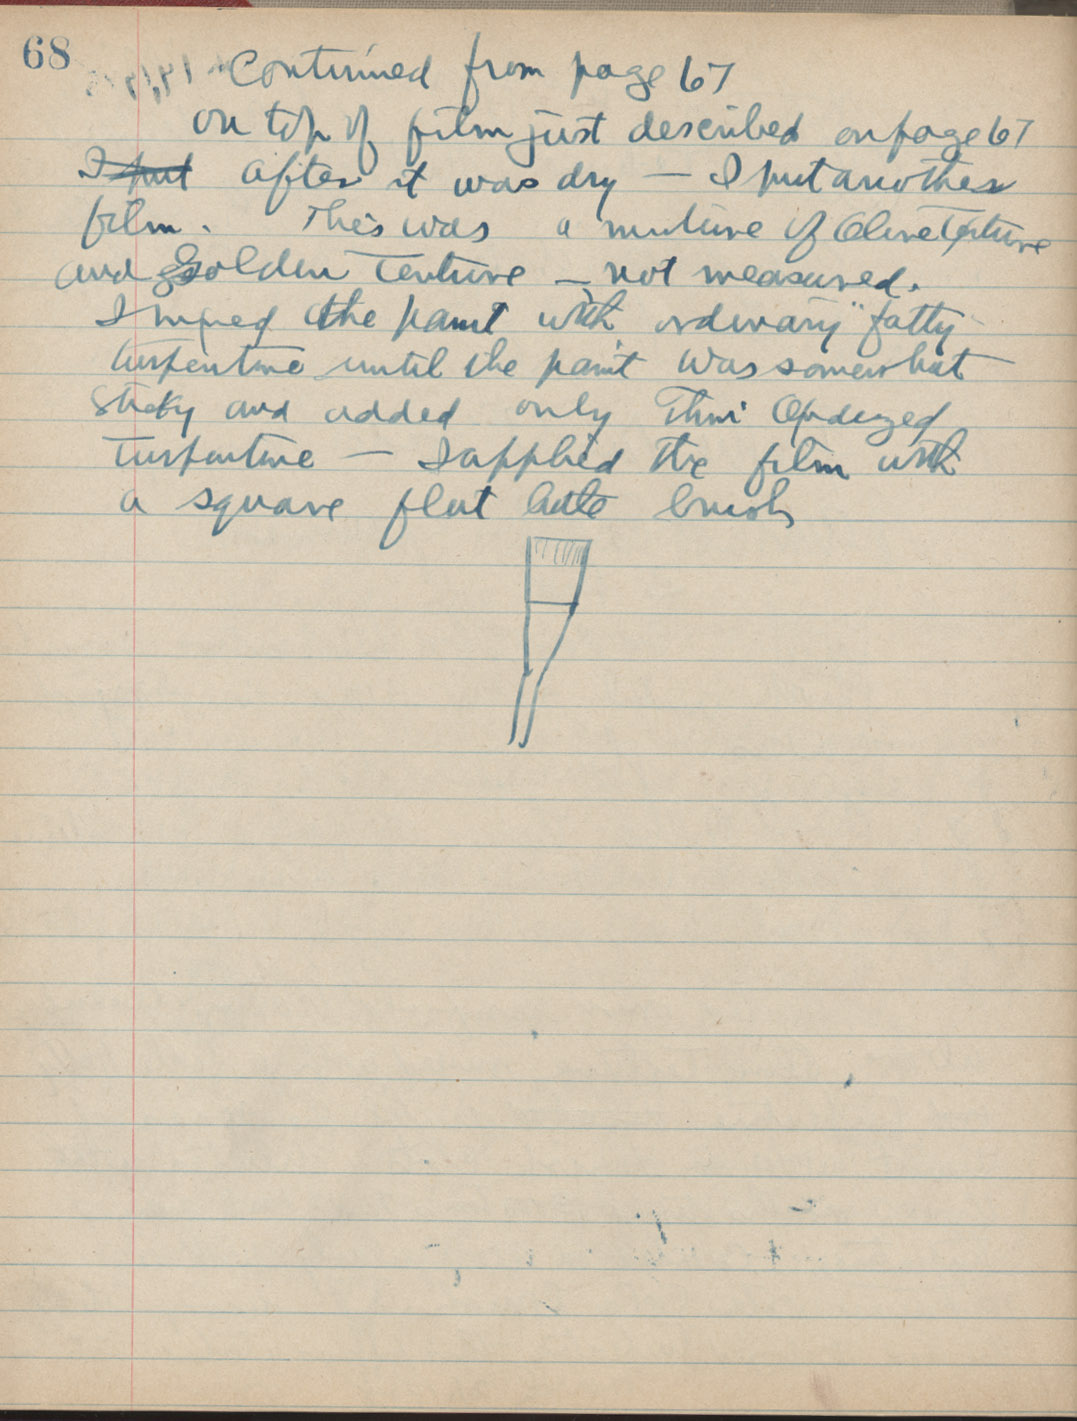 68
Continued from page 67
on top of film just described on page 67
I put after it was dry — I put another
film. This was a mixture of Olive Tenture
and Golden Tenture — not measured.
I mixed the paint with ordinary "fatty
turpentine until the paint was somewhat
sticky and added only Thin Oxidized
Turpentine — I applied the film with
a square flat brush